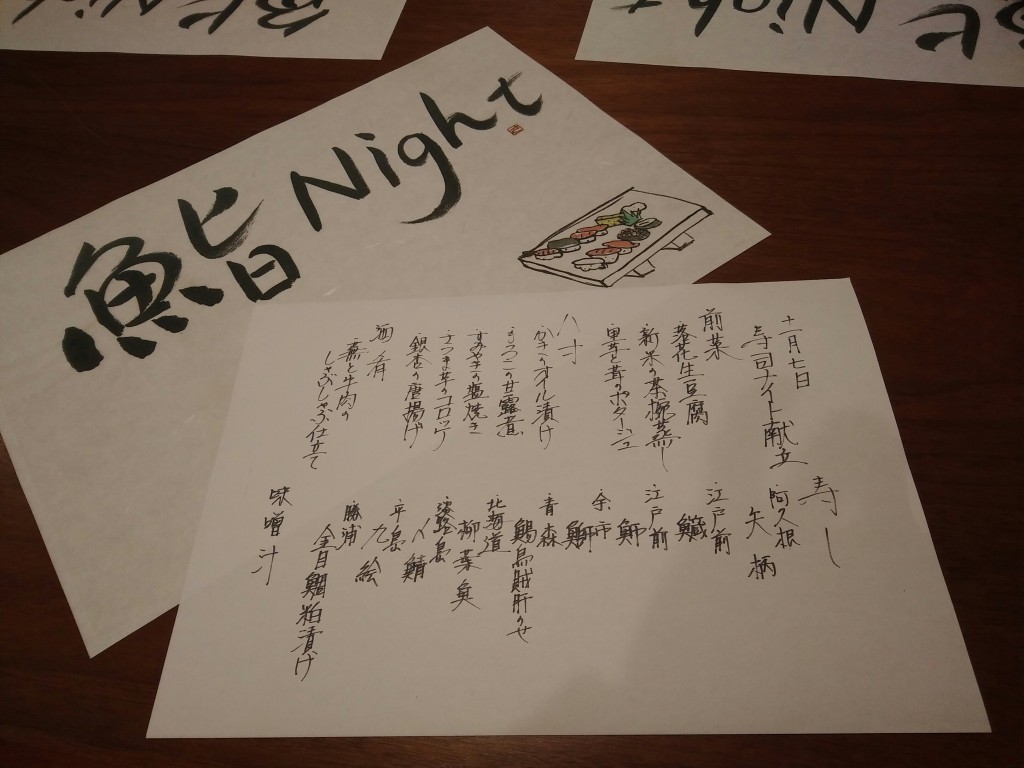 鮨 Night
十一月七日
寿司ナイト献立
前菜
落花生豆腐
新米の
里芋と茸のポタージュ
八寸
かきのオイル漬け
の甘露煮
の塩焼き
さつま芋のコロッケ
銀杏の唐揚げ
酒肴
と牛肉の
しゃぶしゃぶ仕立て
寿し
阿久根
矢柄
江戸前
江戸前
余市
青森
烏賊肝のせ
北海道
柳葉魚
淡路島
〆鯖
九絵
勝浦
金目鯛粕漬け
味噌汁